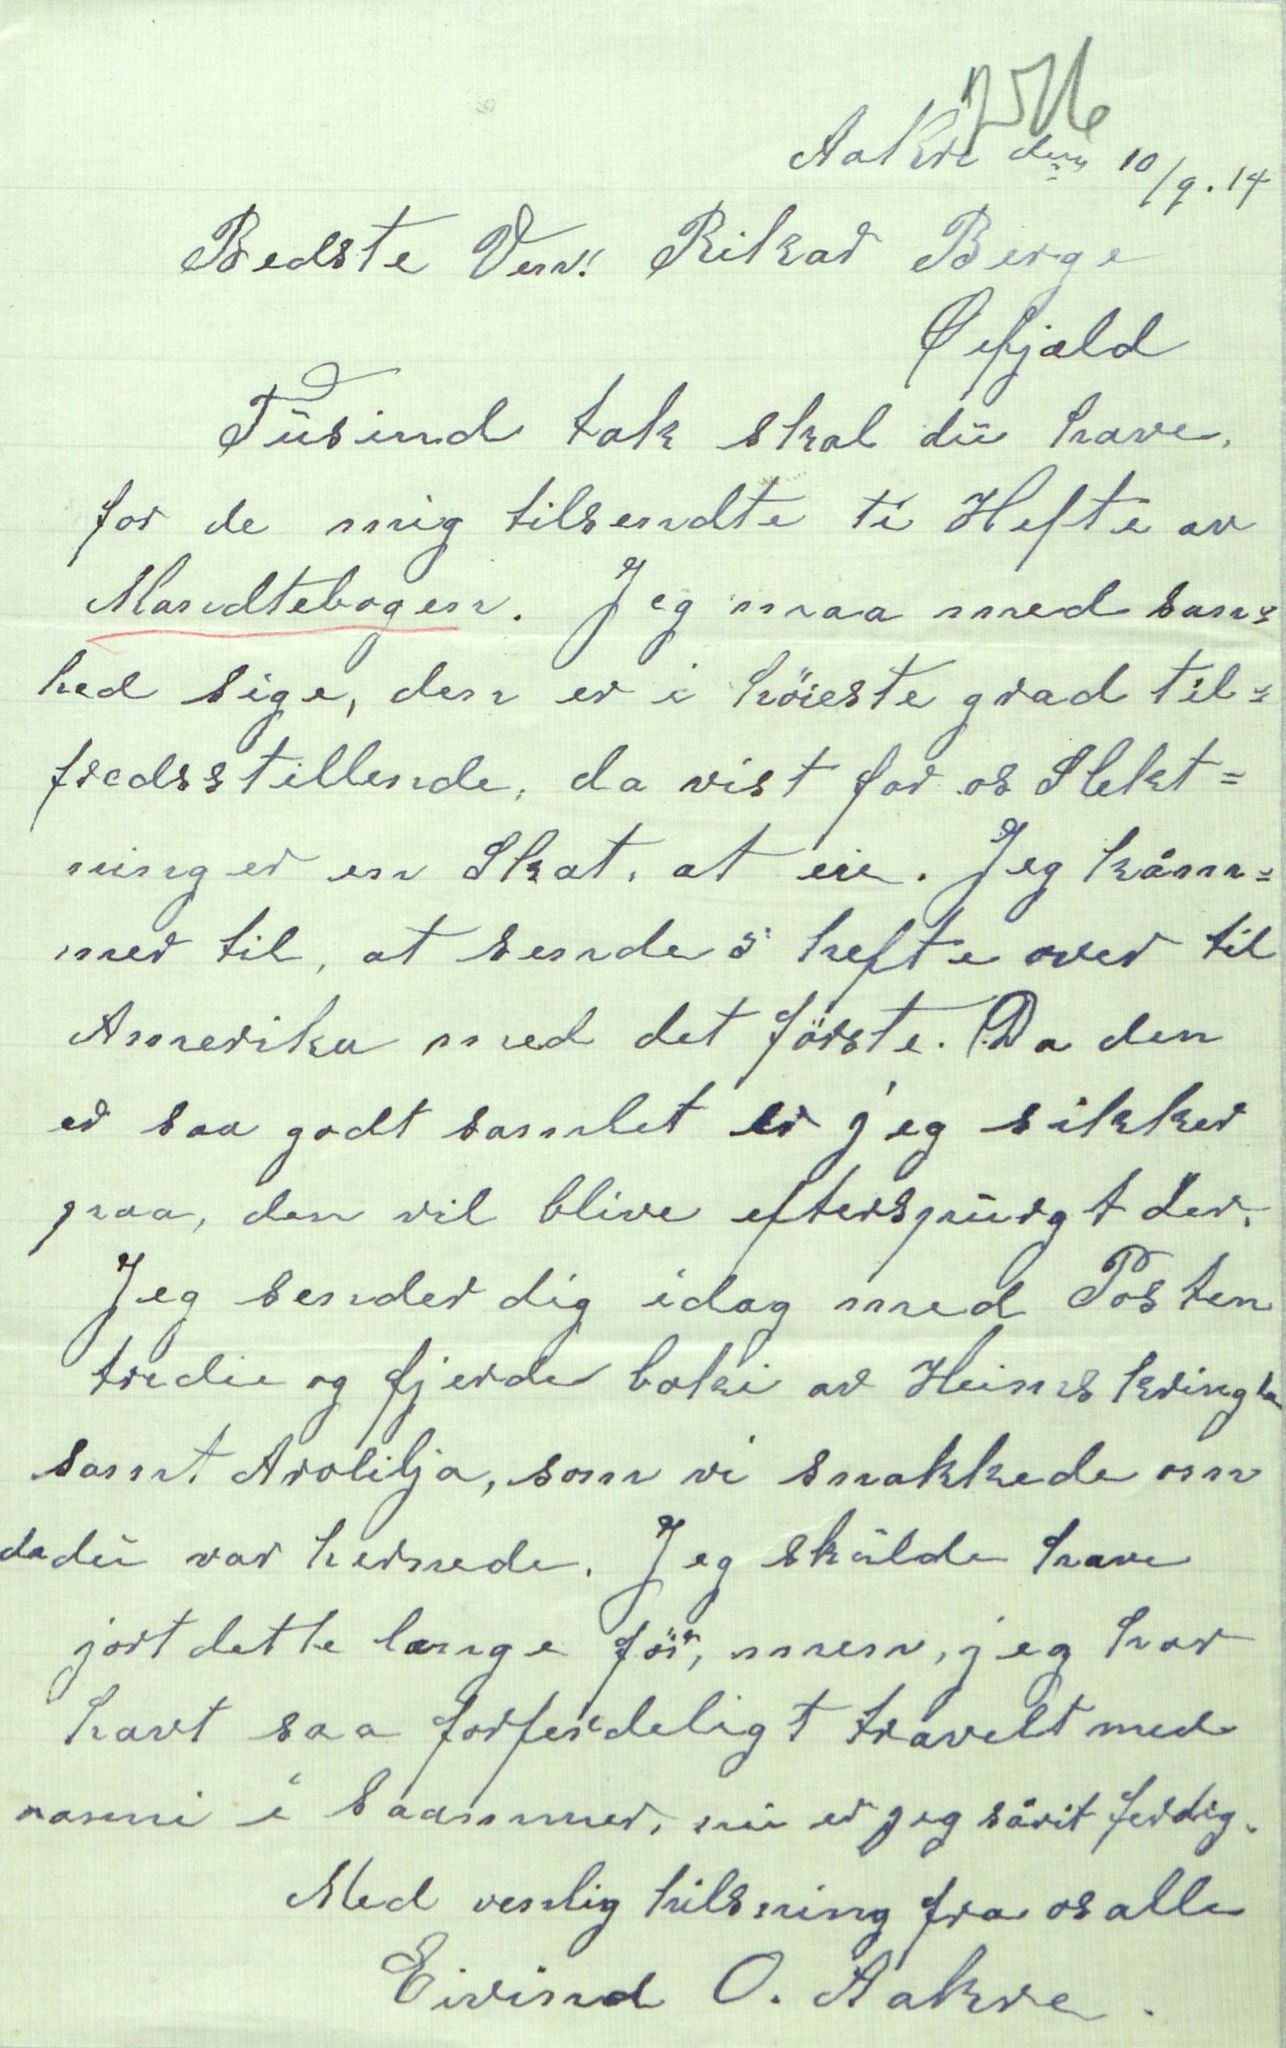 Aakre den 10/9. 14
Bedste Ven! Rikard Berge
Øifjæld
Tusind tak skal du have,
for de mig tilsendte ti Hefte av
Mandtebogen. Jeg maa med san=
hed sige, den er i höieste grad til=
fredsstillende, da vist for os Slekt=
ninger en Skat, at eie. Jeg kåm=
mer til, at sende 5 hefte over til
Amerika med det förste. Da den
er saa godt samlet er jeg sikker
paa, den vil blive efterspurgt der.
Jeg sender dig idag med Posten
tredie og fjerde boki av Heimskringla
samt Arolilja, som vi snakkede om
da du var hernede. Jeg skulde have
jort dette længe för, men, jeg har
havt saa forferdeligt travelt med
i Saammer, nu er jeg ferdig.
Med venlig hilsning fra os alle
Eivind O. Aakre.